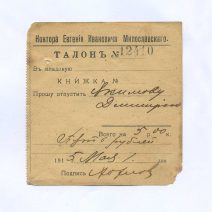 Контора Евгенія Ивановича Милославскаго.
ТАЛОНЪ № 12410
Въ краевую
КНИЖКА №
Прошу отпустить Акимову
Дмитрію
Всего на 5 р. 00 к.
Пять рублей
191 5 Мая 1 дня
Подпись